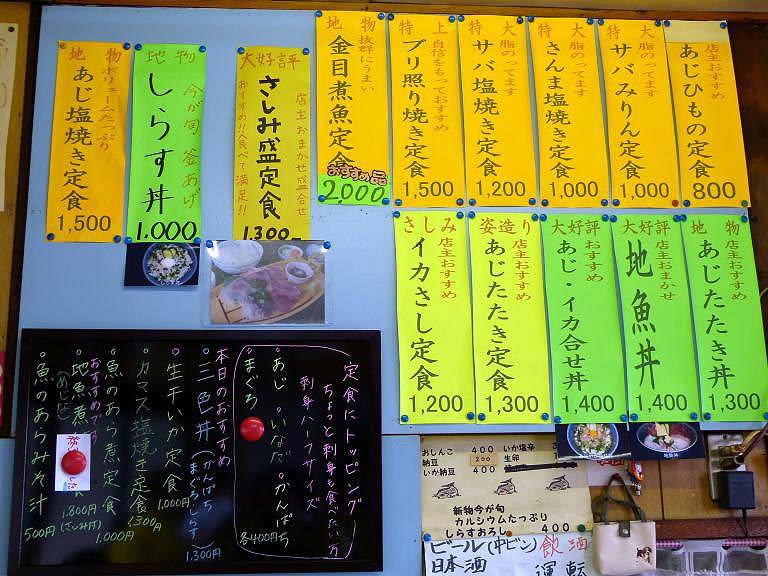 地物
ボリュームたっぷり
あじ塩焼き定食
1,500
地物
今が旬 釜あげ
しらす丼
1.000
大好評
店主おまかせ盛合せ
さしみ盛定食
おすすめ!!食べて満足!!
1.300-
地物
抜群にうまい
金目煮魚定食
おすすめ品
2,000
特上
自信をもっておすすめ
ブリ照り焼き定食
1,500
特大
脂のってます
サバ塩焼き定食
1,200
特大
脂のってます
さんま塩焼き定食
1,000
特大
脂のってます
サバみりん定食
1,000
店主おすすめ
あじひもの定食
800
さしみ
店主おすすめ
イカさし定食
1,200
姿造り
店主おすすめ
あじたたき定食
1,300
大好評
おすすめ
あじ・イカ合せ丼
1,400
大好評
店主おまかせ
地魚丼
1,400
地物
店主おすすめ
あじたたき丼
1,300
定食にトッピング
ちょっと刺身も食べたい方
刺身ハーフサイズ
・あじ ・いなだ ・かんぱち
・まぐろ
各400円
本日のおすすめ
・三色丼(かんぱち まぐろ、しらす)
1.300円
・生干いか定食
1.000円
・カマス塩焼き定食
1,300円
・魚のあら煮定食
1.000円
おすすめです
・地魚煮
1.800円
(さしみ付)
・魚のあらみそ汁
500円
おしんこ 400
納豆 200
いか納豆 400
いか塩辛
生卵
新物今が旬
カルシウムたっぷり
しらすおろし 400
ビール(中ビン)
日本酒
飲酒
運転